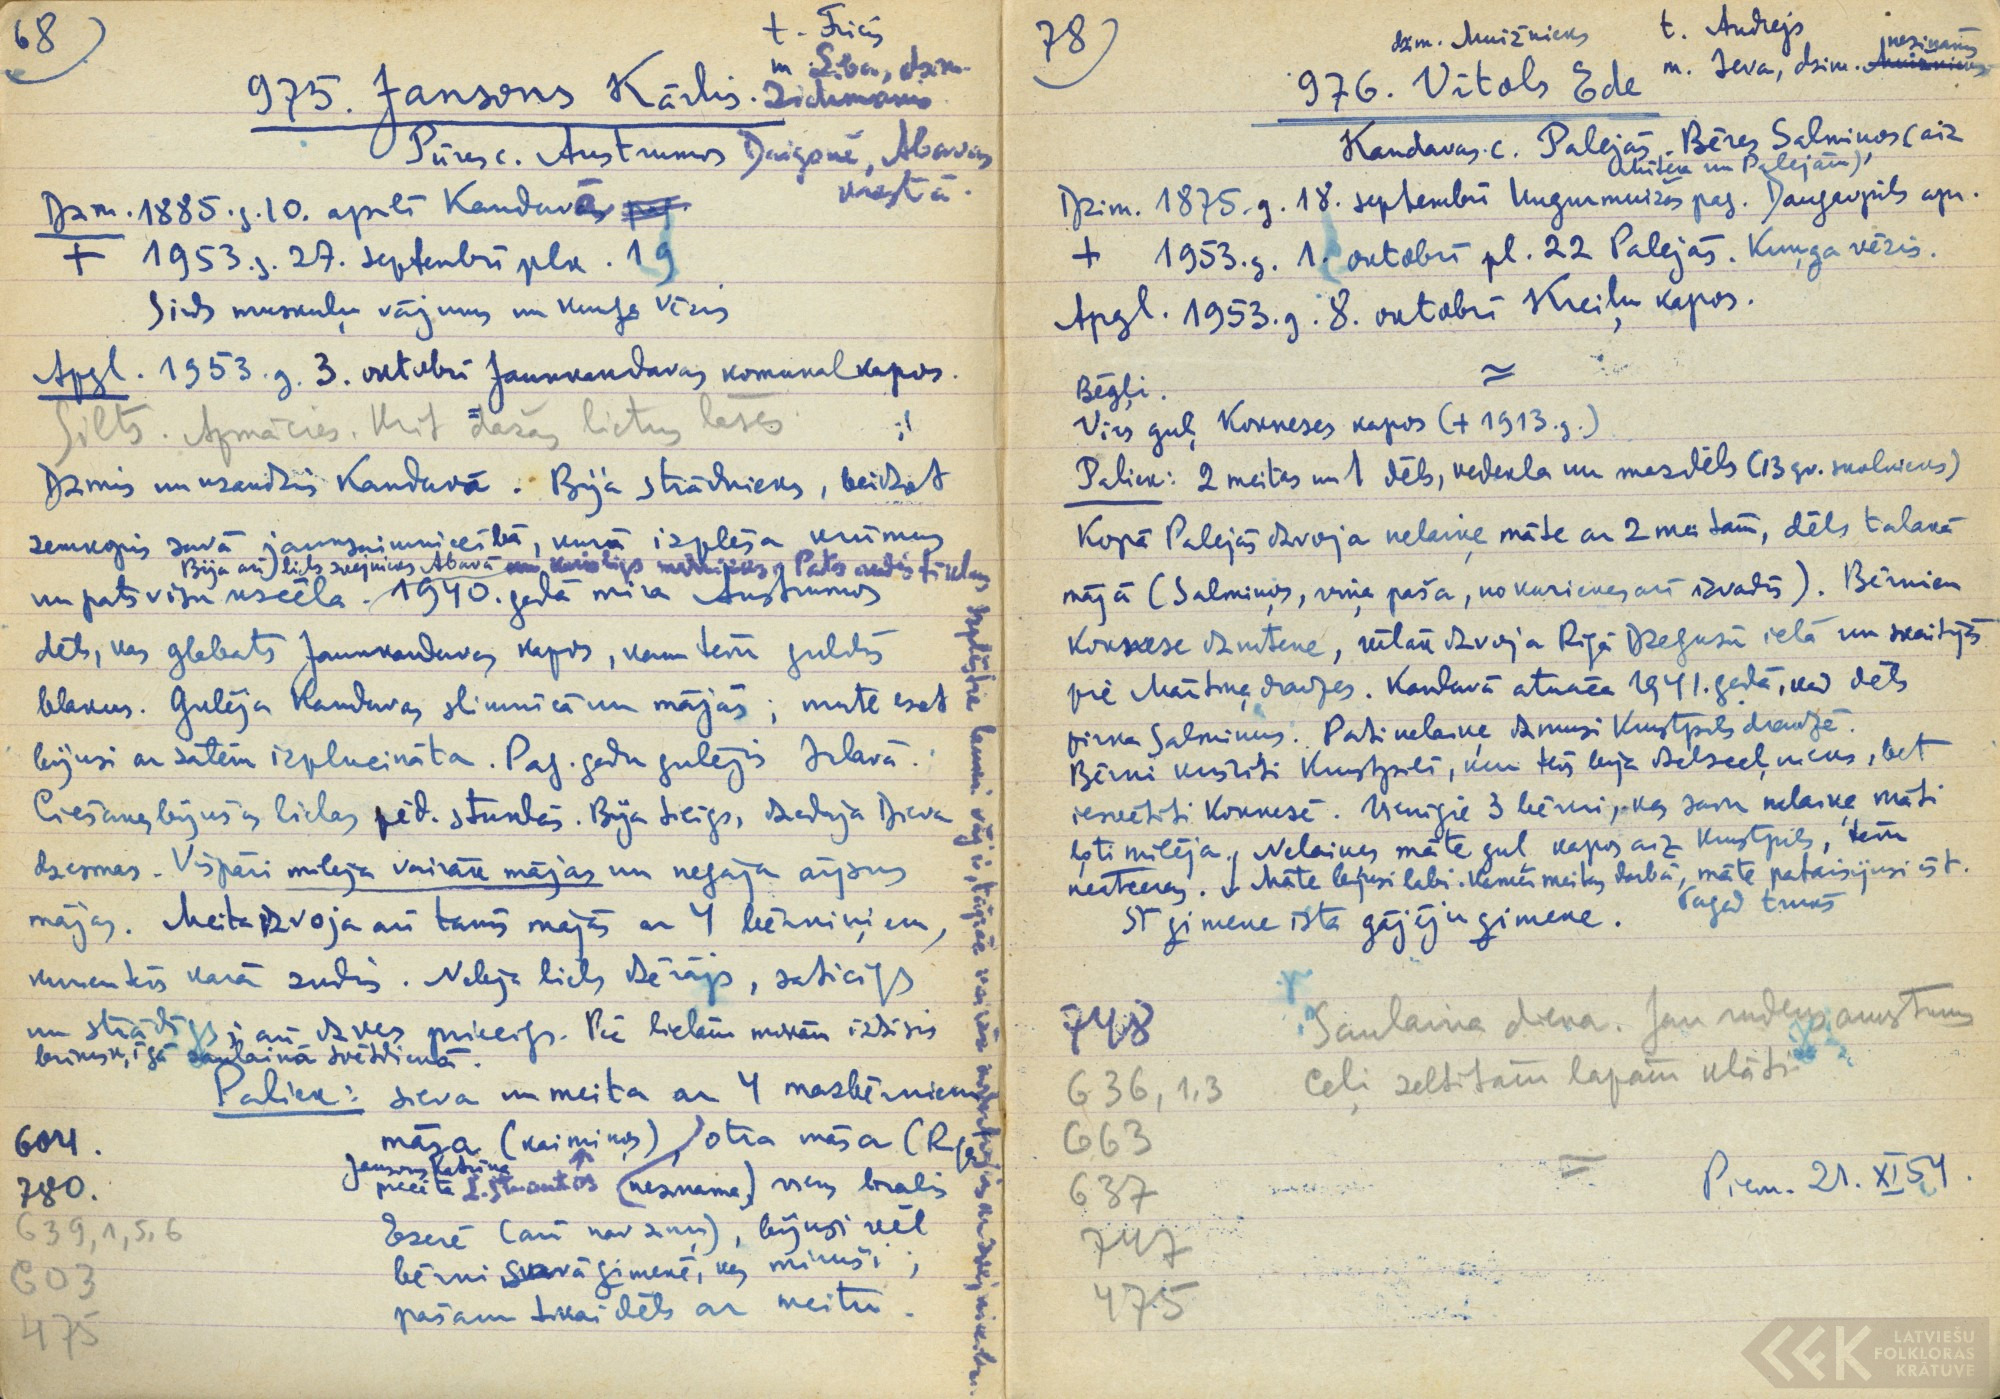 68)
t. Fricis
m Liba, dzim.
975. Jansons Kārlis. Zichmanis
Pūres c. Austrumos Daigonē, Abavas
krastā.
Dzim. 1885. g. 10. aprīlī Kandavā
+ 1953. g. 27. septembrī plk. 19
Sirds muskuļu vājums un kuņģa vēzis
Apgl. 1953. g. 3. oktobrī Jaunkandavas komunal kapos.
Silts. Apmācies. Krīt dažas lietus lāses
Dzimis un uzaudzis Kandavā. Bija strādnieks, beidzot
zemkopis savā jaunsaimniecībā, kurā izplēsa krūmus
Bija arī liels zvejnieks Abavā Pats audis tīklus
un pats visu uscēla. 1940. gadā mira Austrumos
dēls, kas glabāts Jaunkandavas kapos, kam tēvu guldīs
blakus. Gulēja Kandavas slimnīcā un mājās; mute esot
bijusi ar zālēm izplucināta. Pag. gadu gulējis Irlavā.
Ciešanas bijušas lielas pēd. stundās. Bija ticīgs, dziedāja Dieva
dziesmas. Vispāri mīlēja vairāk mājas un negāja ārpus
mājas. Meita dzīvoja arī tanīs mājās ar 4 bērniņiem,
kuriem tēvs karā zudis. Nebija liels dzērājs, saticīgs
un strādīgs; arī dzīves priecīgs. Pie lielām mokām izdzisis
brīnišķīgā saulainā svētdienā.
Paliek: sieva un meita ar 4 mazbērniem
604. māsa (kaimiņos), otra māsa (Rīgā
Jansons Katrīna
780. precēta (nezināma) viens brālis
639, 1, 5, 6 Ezerē (arī nav ziņu), bijuši vēl
603 bērni savā ģimenē, kas miruši;
475 pašam tikai dēls ar meitu.
78)
dzim. Muižnieks t. Andrejs
nezināms
976. Vītols Ede m. Ieva, dzim. Muižnieks
Kandavas c. Palejās. Bēres Salmiņos (aiz
un Palejām)
Dzim. 1875. g. 18. septembrī Ungurmuižas pag. Daugavpils apr.
+ 1953. g. 1. oktobrī pl. 22 Palejās. Kuņģa vēzis.
Apgl. 1953. g. 8. oktobrī Kreiļu kapos.
Bēgļi.
Vīrs guļ Kokneses kapos (+ 1913. g.)
Paliek: 2 meitas un 1 dēls, vedekla un mazdēls (13 gv. skolnieks)
Kopā Palejās dzīvoja nelaiķe māte ar 2 meitām, dēls talakā
mājā (Salmiņos, viņa paša, no kurienes arī izvadīs). Bērniem
Koknese dzimtene, vēlāk dzīvoja Rīgā Dzegužu ielā un skaitījās
pie Mārtiņa draudzes. Kandavā atnāca 1941. gadā, kad dēls
pirka Salmiņus. Pati nelaiķe dzimusi Krustpils draudzē.
Bērni kristīti Krustpilī, kur tēvs bija dzelzceļnieks, bet
iesvētīti Koknesē. Vienīgie 3 bērni, kas savu nelaiķe māti
ļoti mīlēja. Nelaiķes māte guļ kapos aiz Krustpils, tēvu
neatceras. Māte bijusi labi. Kamēr meitas darbā, māte pataisījusi ēst.
Tagad trūks
Šī ģimene īsta gājēju ģimene.
748 Saulaina diena. Jau rudens aukstums
636, 1, 3 Ceļi zeltītām lapām klāti
663
637 Piem. 21. XI 54.
747
475
LATVIEŠU
FOLKLORAS
KRĀTUVE